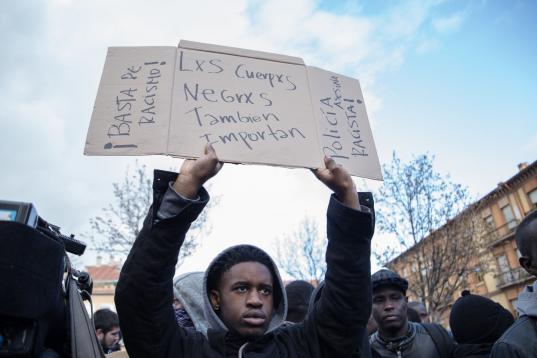 ¡BASTA DE
RACISMO!
LxS Cuerpxs
NEgRxs
También
Importan
POLICÍA ASESINA
RACISTA!